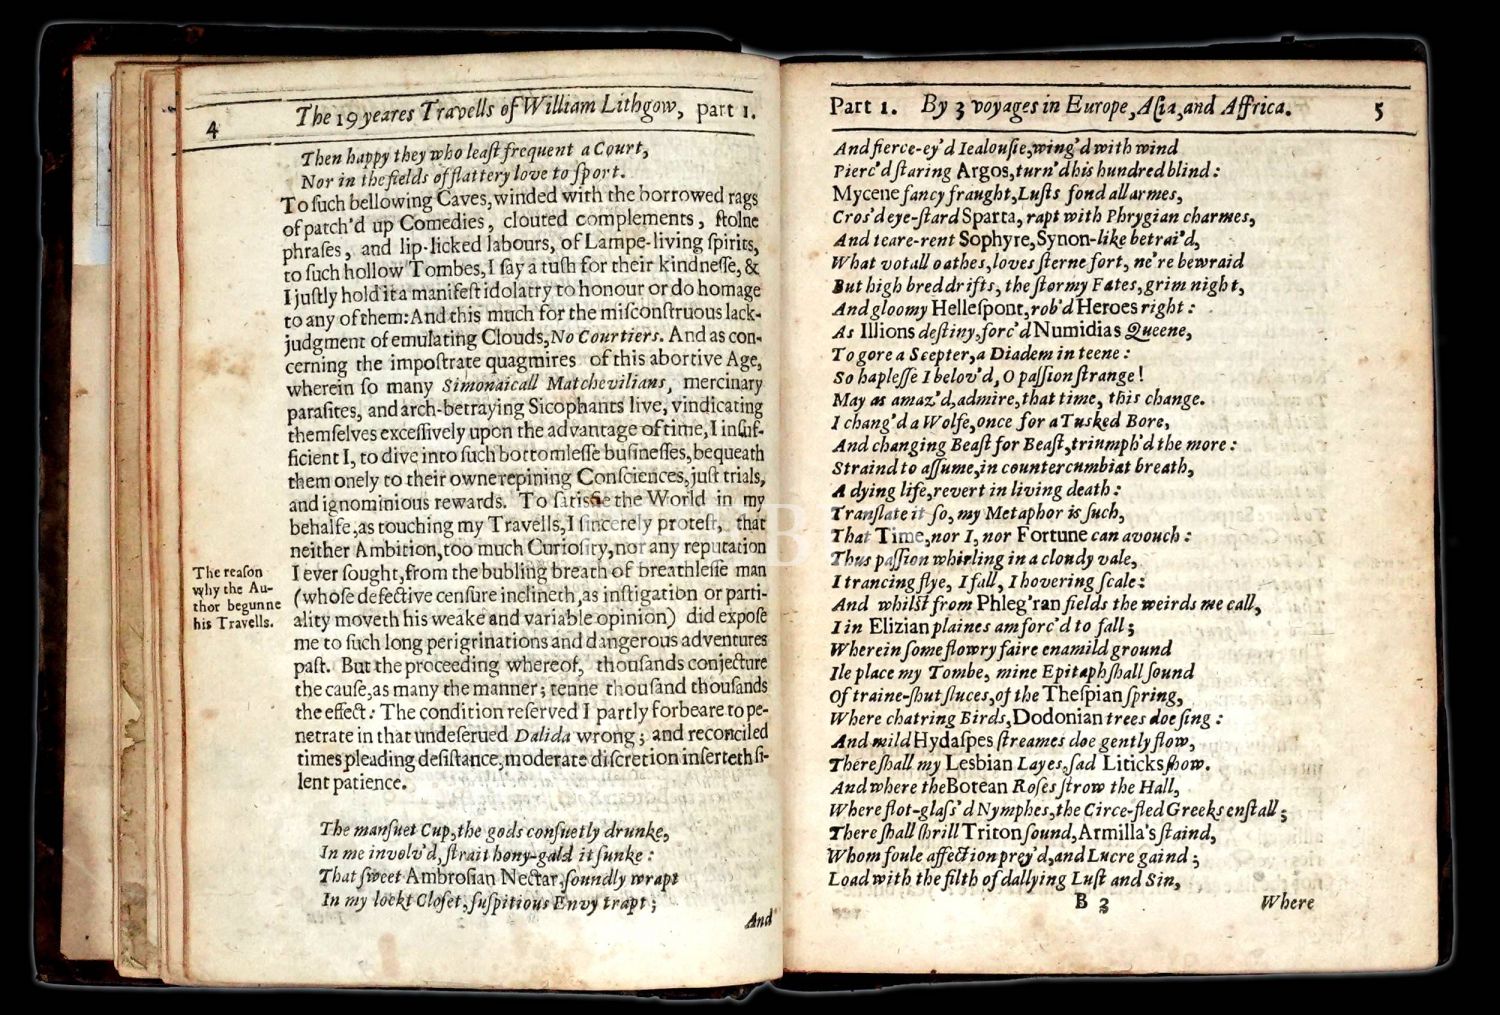 4 The 19 yeares Travells of William Lithgow, part 1.
Then happy they who leaſt frequent a Court,
Nor in the fields of flattery love to ſport.
To ſuch bellowing Caves, winded with the borrowed rags
of patch'd up Comedies, clouted complements, ſtolne
phraſes, and lip-licked labours, of Lampe-living ſpirits,
to ſuch hollow Tombes, I ſay a tuſh for their kindneſſe, &
I juſtly hold it a manifeſt idolatry to honour or do homage
to any of them: And this much for the miſconſtruous lack-
judgment of emulating Clouds, No Courtiers. And as con-
cerning the impoſtrate quagmires of this abortive Age,
wherein ſo many Simonaicall Matchevilians, mercinary
paraſites, and arch-betraying Sicophants live, vindicating
themſelves exceſſively upon the advantage of time, I inſuf-
ficient I, to dive into ſuch bottomleſſe buſineſſes, bequeath
them onely to their owne repining Conſciences, juſt trials,
and ignominious rewards. To ſatisfie the World in my
behalfe, as touching my Travells, I ſincerely proteſt, that
neither Ambition, too much Curioſity, nor any reputation
I ever ſought, from the bubling breath of breathleſſe man
(whoſe defective cenſure inclineth, as inſtigation or parti-
ality moveth his weake and variable opinion) did expoſe
me to ſuch long perigrinations and dangerous adventures
paſt. But the proceeding whereof, thouſands conjecture
the cauſe, as many the manner; tenne thouſand thouſands
the effect: The condition reſerved I partly forbeare to pe-
netrate in that undeſerued Dalida wrong; and reconciled
times pleading deſiſtance, moderate diſcretion inſerteth ſi-
lent patience.
The reaſon
why the Au-
thor begunne
his Travells.
The manſuet Cup, the gods conſuetly drunke,
In me involv'd, ſtrait hony-gald it ſunke:
That ſweet Ambroſian Nectar, ſoundly wrapt
In my lockt Cloſet, ſuſpitious Envy trapt;
And
Part 1. By 3 voyages in Europe, Aſia, and Affrica. 5
And fierce-ey'd Iealouſie, wing'd with wind
Pierc'd ſtaring Argos, turn'd his hundred blind:
Mycene fancy fraught, Luſts fond allarmes,
Cros'd eye-ſtard Sparta, rapt with Phrygian charmes,
And teare-rent Sophyre, Synon-like betrai'd,
What votall oathes, loves ſterne fort, ne're bewraid
But high bred drifts, the ſtormy Fates, grim night,
And gloomy Helleſpont, rob'd Heroes right:
As Illions deſtiny, forc'd Numidias Queene,
To gore a Scepter, a Diadem in teene:
So hapleſſe I belov'd, O paſſion ſtrange!
May as amaz'd, admire, that time, this change.
I chang'd a Wolfe, once for a Tusked Bore,
And changing Beaſt for Beaſt, triumph'd the more:
Straind to aſſume, in countercumbiat breath,
A dying life, revert in living death:
Tranſlate it ſo, my Metaphor is ſuch,
That Time, nor I, nor Fortune can avouch:
Thus paſſion whirling in a cloudy vale,
I trancing flye, I fall, I hovering ſcale:
And whilſt from Phleg'ran fields the weirds me call,
I in Elizian plaines am forc'd to fall;
Wherein ſome flowry faire enamild ground
Ile place my Tombe, mine Epitaph ſhall ſound
Of traine-ſhut ſluces, of the Theſpian ſpring,
Where chatring Birds, Dodonian trees doe ſing:
And mild Hydaſpes ſtreames doe gently flow,
There ſhall my Lesbian Layes, ſad Liricks ſhow.
And where the Borean Roſes ſtrow the Hall,
Where flot-glaſs'd Nymphes, the Circe-fled Greeks enſtall;
There ſhall ſhrill Triton ſound, Armilla's ſtaind,
Whom foule affection prey'd, and Lucre gaind;
Load with the filth of dallying Luſt and Sin,
B 3 Where